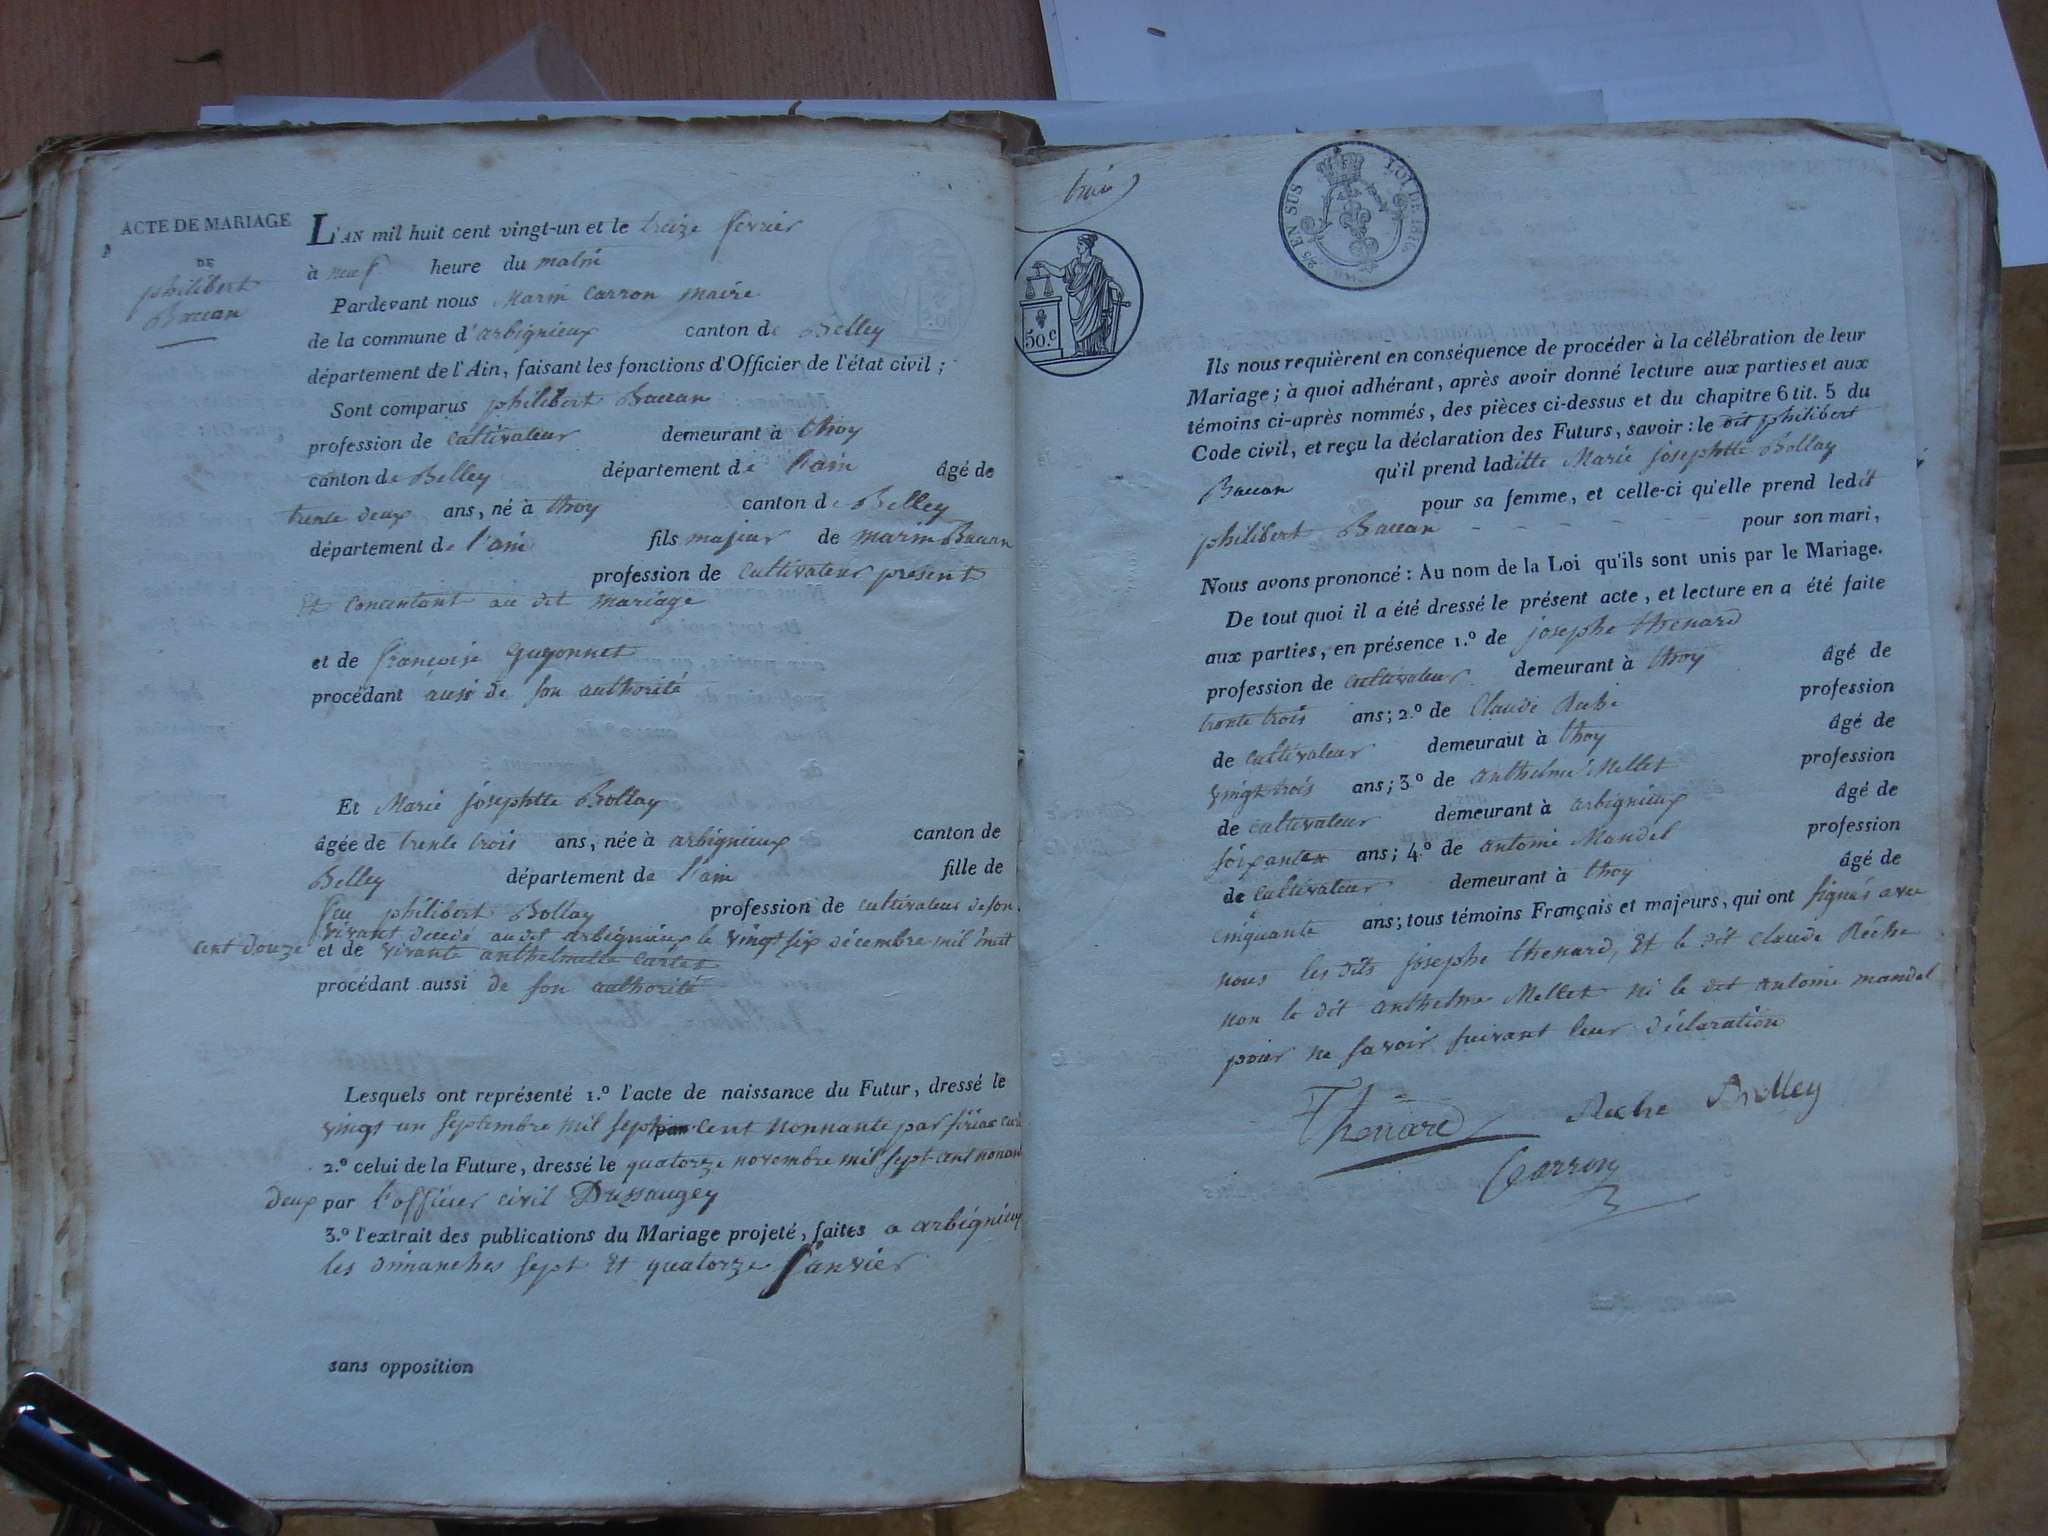 ACTE DE MARIAGE
DE
philibert
Baccan
L'AN mil huit cent vingt-un et le treize fevrier
à neuf heure du matin
Pardevant nous Marin Carron maire
de la commune d'arbignieux canton de Belley
département de l'Ain, faisant les fonctions d'Officier de l'état civil ;
Sont comparus philibert Baccan
profession de cultivateur demeurant à thoy
canton de Belley département de l'ain âgé de
trente deux ans, né à thoy canton de Belley
département de l'ain fils majeur de marin Baccan
profession de cultivateur present
Et concentant au dit mariage
et de françoise Guyonnet
procédant aussi de son authorité
Et Marie josephtte Bollay
âgée de trente trois ans, née à arbignieux canton de
Belley département de l'ain fille de
feu philibert Bollay profession de cultivateur de son
vivant decedé audit arbignieux le vingt six décembre mil huit
cent douze et de vivante anthelmette
procédant aussi de son authorité
Lesquels ont représenté 1.º l'acte de naissance du Futur, dressé le
vingt un septembre mil sept cent nonnante par
2.º celui de la Future, dressé le quatorze novembre mil sept cent nonan
deux par l'officier civil Dussaugey
3.º l'extrait des publications du Mariage projeté, faites a arbignieux
les dimanches sept Et quatorze janvier
sans opposition
trois
25 EN SUS
LOI DE 1816
50.c
Ils nous requièrent en conséquence de procéder à la célébration de leur
Mariage ; à quoi adhérant, après avoir donné lecture aux parties et aux
témoins ci-après nommés, des pièces ci-dessus et du chapitre 6 tit. 5 du
Code civil, et reçu la déclaration des Futurs, savoir : le dit philibert
Baccan qu'il prend laditte Marie josephtte Bollay
pour sa femme, et celle-ci qu'elle prend ledit
philibert Baccan pour son mari,
Nous avons prononcé : Au nom de la Loi qu'ils sont unis par le Mariage.
De tout quoi il a été dressé le présent acte, et lecture en a été faite
aux parties, en présence 1.º de josephe thenard
profession de cultivateur demeurant à thoy âgé de
trente trois ans ; 2.º de Claude Reche profession
de cultivateur demeurant à thoy âgé de
vingt trois ans ; 3.º de anthelme Mellet profession
de cultivateur demeurant à arbignieux âgé de
soixante ans ; 4.º de antoine Mandel profession
de cultivateur demeurant à thoy âgé de
cinquante ans ; tous témoins Français et majeurs, qui ont signés avec
nous les dits josephe thenard, Et le dit Claude Réche
non le dit anthelme Mellet ni le dit antoine mandel
pour ne savoir suivant leur déclaration
Thenard Reche Bolley
Carron